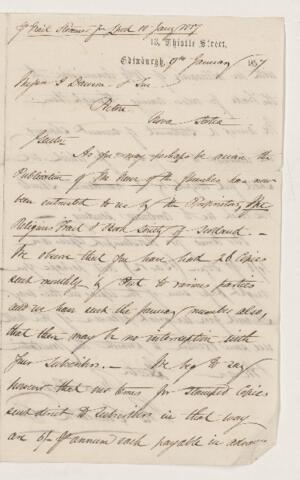 pr Mail Steamer from Lpool 10 Jany 1857
13, Thistle Street,
Edinburgh, 9th January 1857
Messrs J Dawson & Son
Pictou
Nova Scotia
Gentn
As you may perhaps be aware the
Publication of The News of the Churches has now
been entrusted to us by the Proprietors, The
Religious Tract & Book Society of Scotland. —
We observe that you have had 26 Copies
sent monthly by Post to various parties
and we have sent the January number also,
that there may be no interruption with
your Subscribers. — We beg to say
however that our terms for Stamped Copies
sent direct to Subscribers in that way
are 6/- pr annum each payable in advance